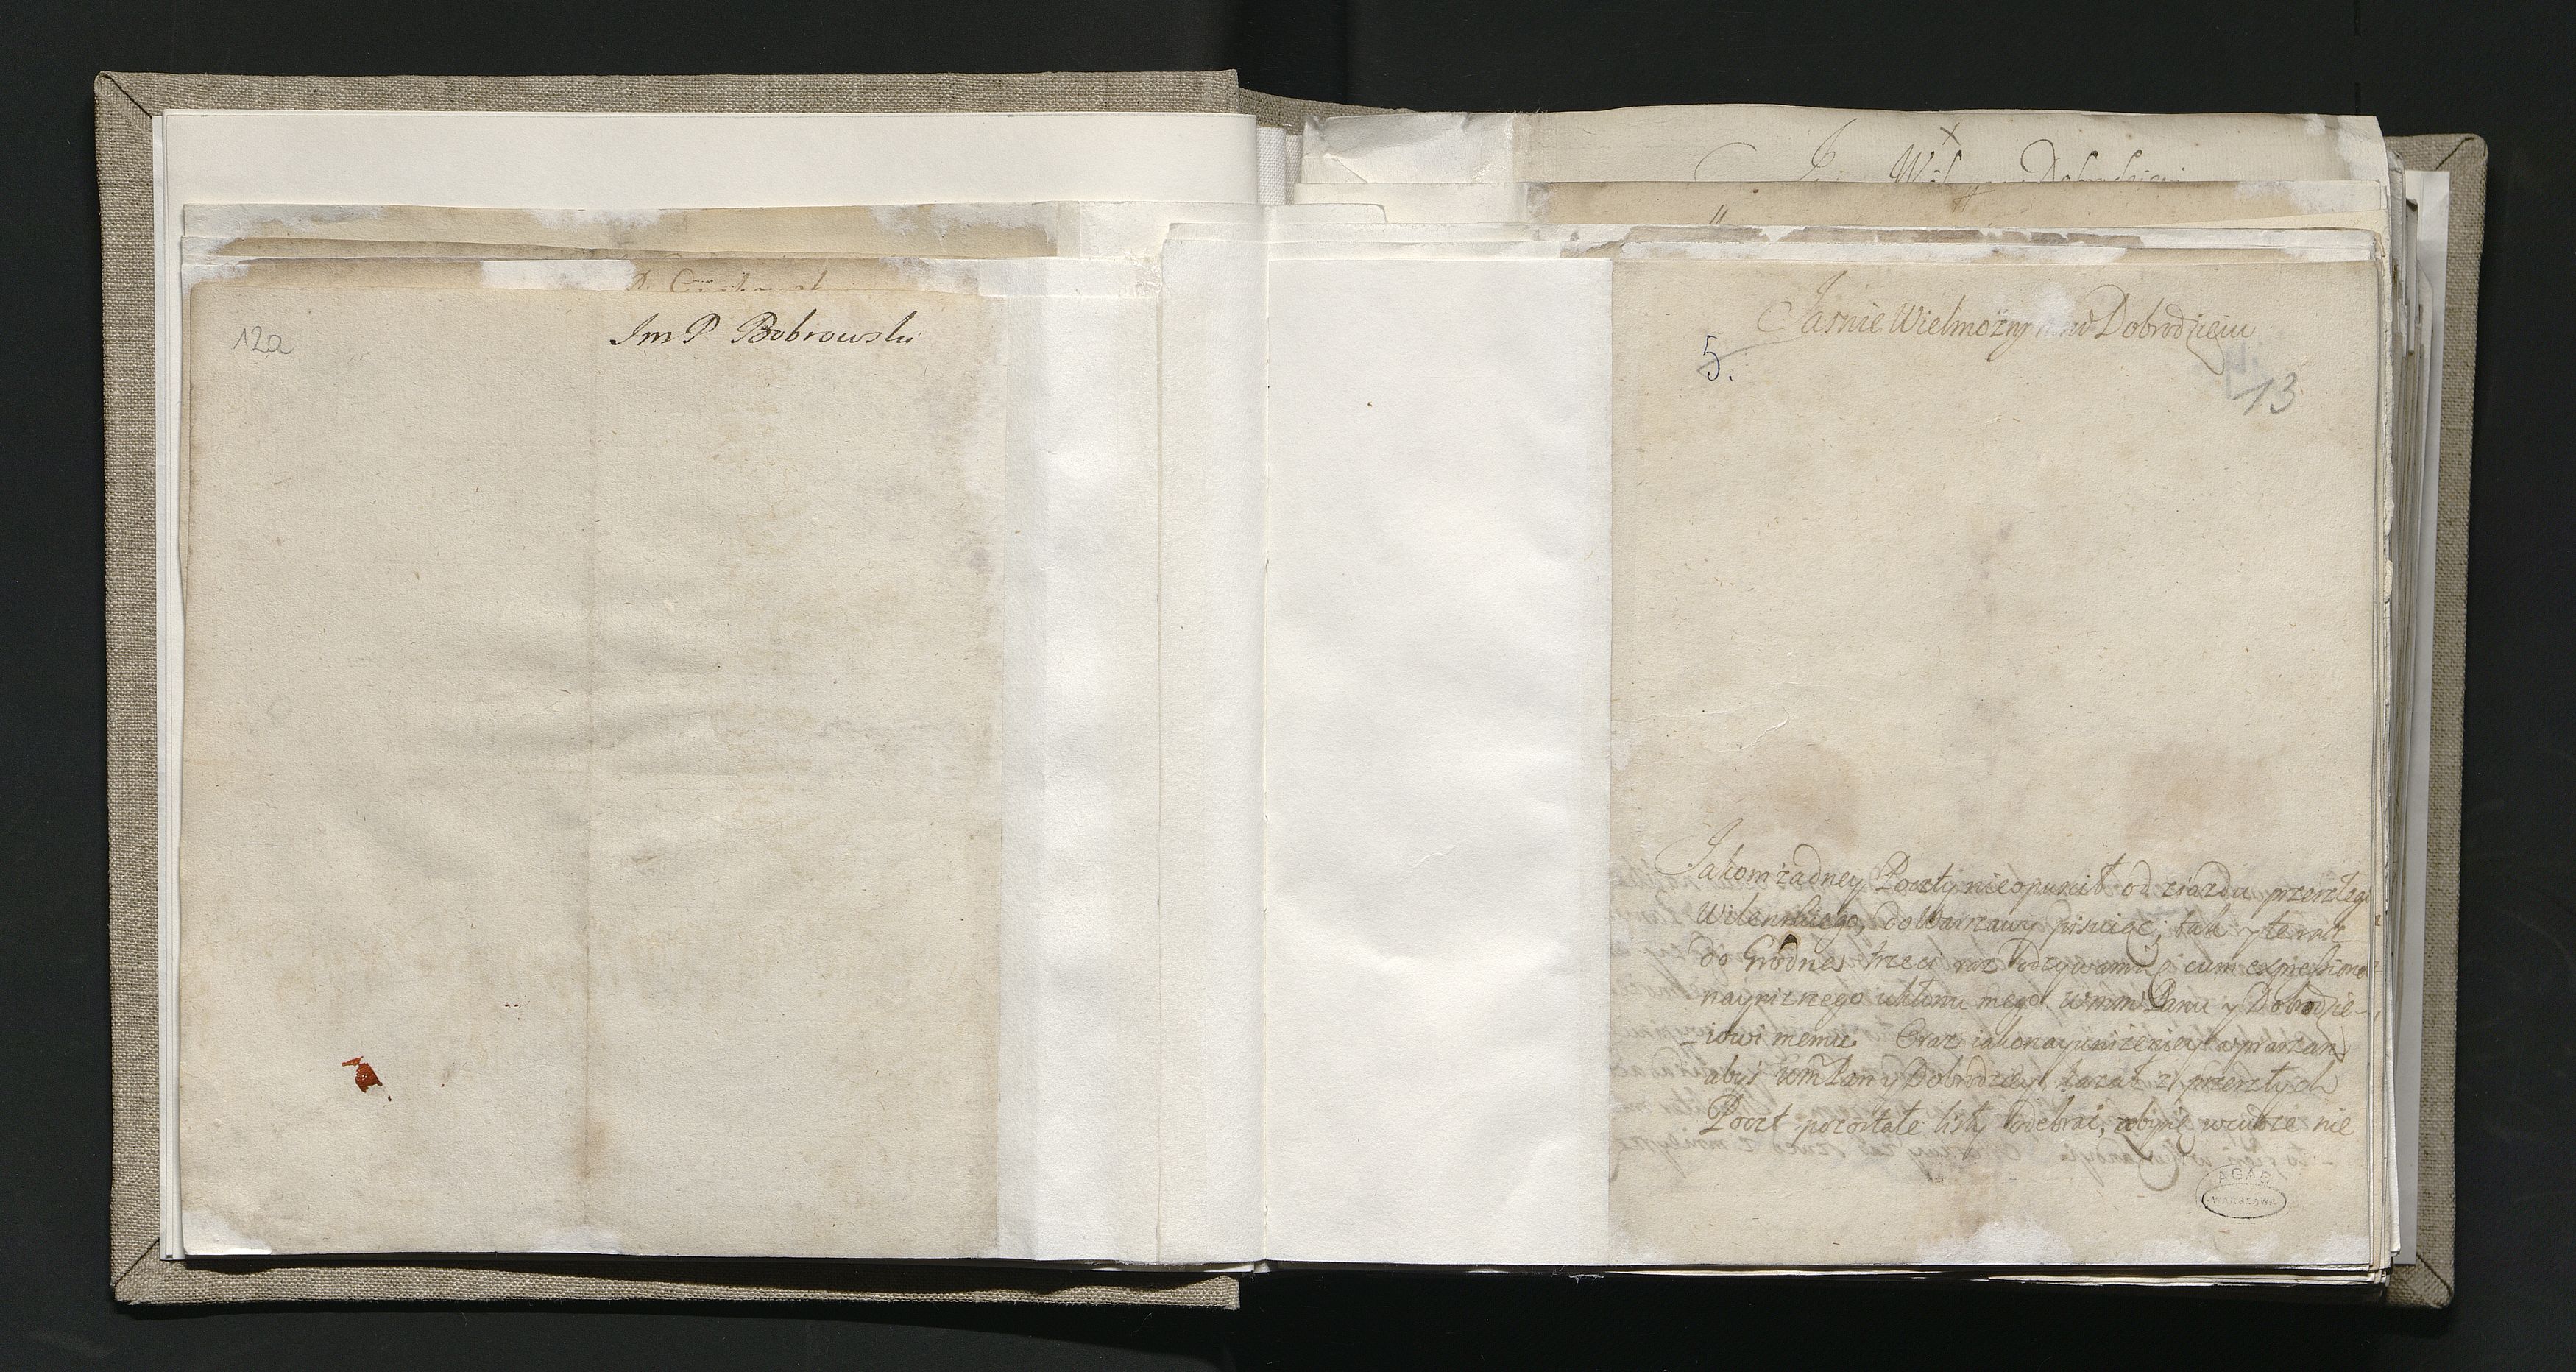 12a
Im P Bobrowski
Dobrodzieiu
Jasnie Wielmożny mnie Dobrodzieiu
5.
13
Jakom żadney Poczty nieopuscił od ziazdu przeszłego
Wilenskiego, do Warszawy pisuiąc, tak y teraz
do Grodna trzeci raz odzywam się cum expressione
nayniznego ukłonu mego wmm Panu y Dobrodzie-
-iowi memu. Oraz iako nayuniżeniey upraszam
abyś wm Pan y Dobrodziey kazał z przeszłych
Poczt pozostałe listy odebrać, w cudze nie
AGAD
WARSZAWA